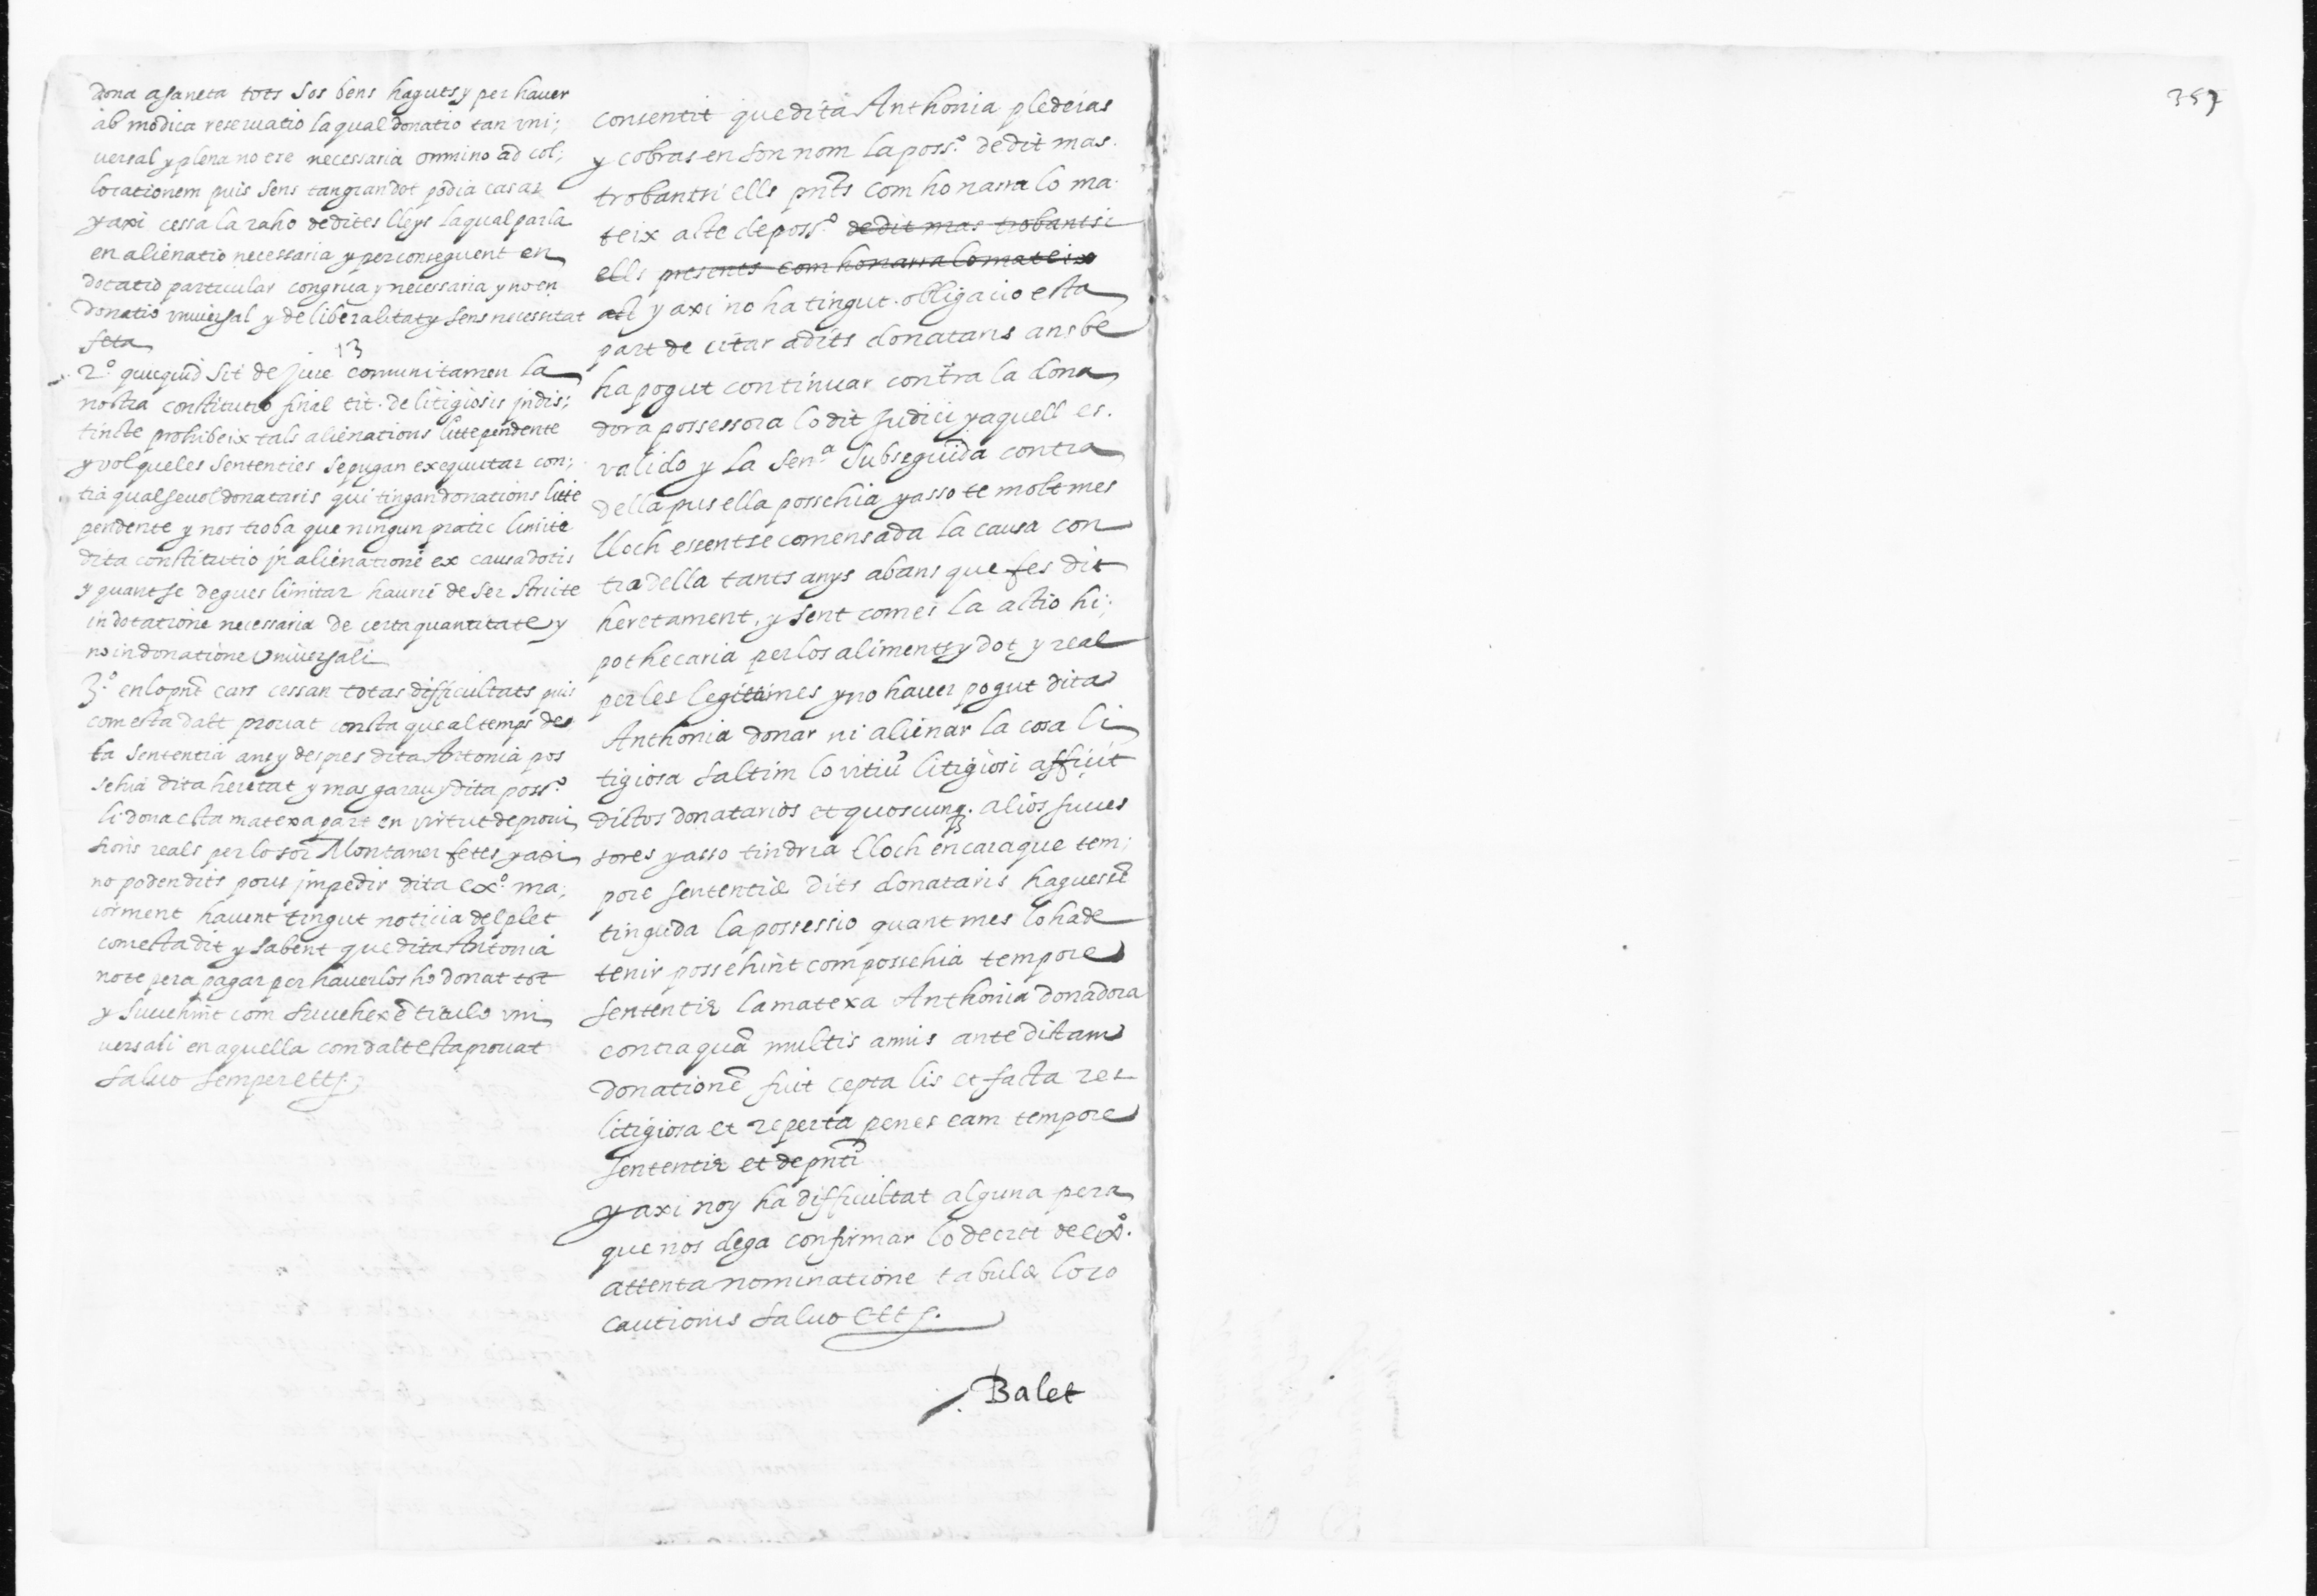 dona a Janeta tots sos bens haguts y per haver
ab modica reservatio la qual donatio tan uni;
versal y plena no ere necessaria omnino ad col;
locationem puis sens tan gran dot podia casar
y axi cessa la raho de dites lleys la qual parla
en alienatio necessaria y per conseguent en
dotatio particular congrua y necessaria y no en
donatio universal y de liberalitat y sens necessitat
feta
13
2.º quicquid sit de jure comuni tamen la
nostra constitutio final tit. de litigiosis indis;
tincte prohibeix tals alienations litte pendente
y vol que les sententies se pugan exequutar con;
tra qualsevol donataris qui tingan donations litte
pendente y nos troba que ningun pratic limite
dita constitutio in alienatione ex causa dotis
y quant se degues limitar hauri de ser stricte
in dotatione necessaria de certa quantitate y
no in donatione universali
3.º en lo pnt cars cessan totas difficultats puis
com esta dalt provat consta que al temps de
la sententia ans y despres dita Antonia pos
sehia dita heretat y mas garau y dita poss.º
li dona esta matexa part en virtut de provi
sions reals per lo sor Montaner fetes y axi
no poden dits pous impedir dita ex.º ma;
iorment havent tingut noticia del plet
com esta dit y sabent que dita Antonia
no te pera pagar per haverlos ho donat tot
y succehint com succehexẽ titulo uni
versali en aquella com dalt esta provat
salvo semper ett.
consentit que dita Anthonia pledeias
y cobras en son nom la poss.º de dit mas.
trobantsi ells pnts com ho narra lo ma.
teix acte de poss.º de dit mas trobantsi
ells presents com ho narra lo mateix
act y axi no ha tingut obligacio esta
part de citar a dits donataris ans be
ha pogut continuar contra la dona
dora possessora lo dit judici y aquell es.
valido y la sen.ª subseguida contra
della pus ella possehia y asso te molt mes
lloch essentse comensada la causa con
tra della tants anys abans que fes dit
heretament, y sent comes la actio hi;
pothecaria per los aliments y dot y real
per les legitimes y no haver pogut dita
Anthonia donar ni alienar la cosa li
tigiosa saltim lo vitiũ litigiosi afficit
dictos donatarios et quoscunq. alios succes
13
sores y asso tindria lloch encaraque tem;
pore sententiæ dits donataris haguessẽ
tinguda la possessio quant mes lo ha de
tenir possehint com possehia tempore
sententiæ la matexa Anthonia donadora
contra quã multis annis ante dictam
donationẽ fuit cepta lis et facta res
litigiosa et reperta penes eam tempore
sententiæ et de pnti
y axi noy ha difficultat alguna pera
que nos dega confirmar lo decret de ex.º
attenta nominatione tabulæ loco
cautionis salvo ett.
Balet
357